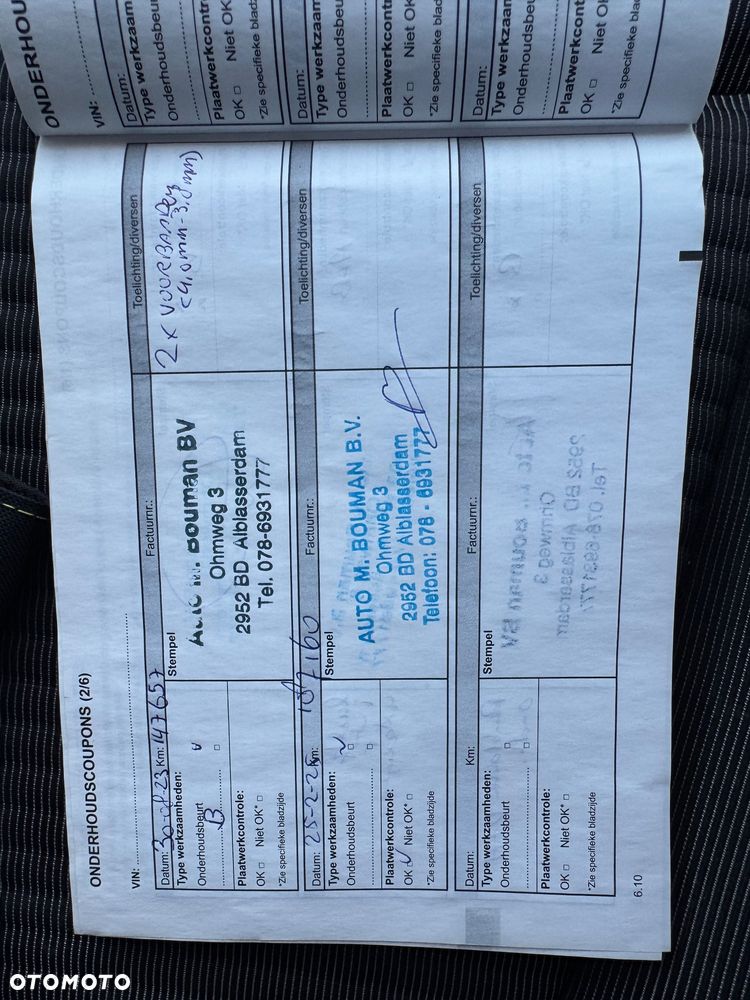 ONDERHOUDSCOUPONS (2/6)
VIN:
Datum: 30-01-23 Km: 147657 Factuurnr.: Toelichting/diversen
Type werkzaamheden:
Onderhoudsbeurt
B
Plaatwerkcontrole:
OK □ Niet OK* □
*Zie specifieke bladzijde
Stempel
Auto M. Bouman BV
Ohmweg 3
2952 BD Alblasserdam
Tel. 078-6931777
2x VOORBANDEN
Datum: 25-2-25 Km: Factuurnr.: Toelichting/diversen
Type werkzaamheden:
Onderhoudsbeurt
Plaatwerkcontrole:
OK Niet OK* □
*Zie specifieke bladzijde
Stempel
AUTO M. BOUMAN B.V.
Ohmweg 3
2952 BD Alblasserdam
Telefoon: 078 - 6931777
Datum: Km: Factuurnr.: Toelichting/diversen
Type werkzaamheden:
Onderhoudsbeurt □
Plaatwerkcontrole:
OK □ Niet OK* □
*Zie specifieke bladzijde
Stempel
6.10
ONDERHOU
VIN:
Datum:
Type werkzaam
Onderhoudsbeur
Plaatwerkcontr
OK □ Niet OK
*Zie specifieke bladz
Datum:
Type werkzaam
Onderhoudsbeu
Plaatwerkcontr
OK □ Niet O
*Zie specifieke blad
Datum:
Type werkzaa
Onderhoudsb
Plaatwerkcon
OK □ Niet
*Zie specifieke b
OTOMOTO